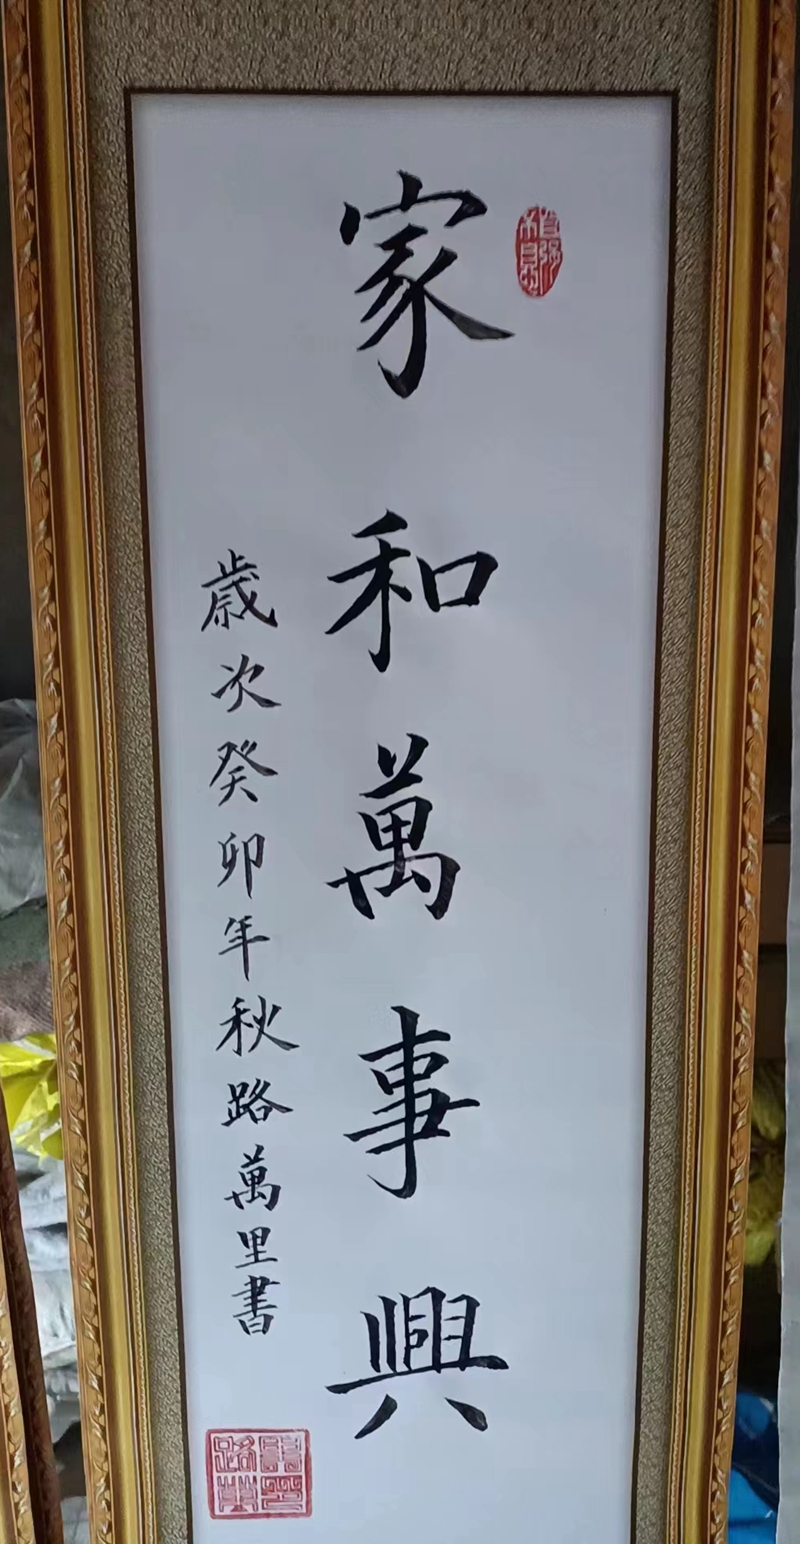 家和萬事興
歲次癸卯年秋路萬里書